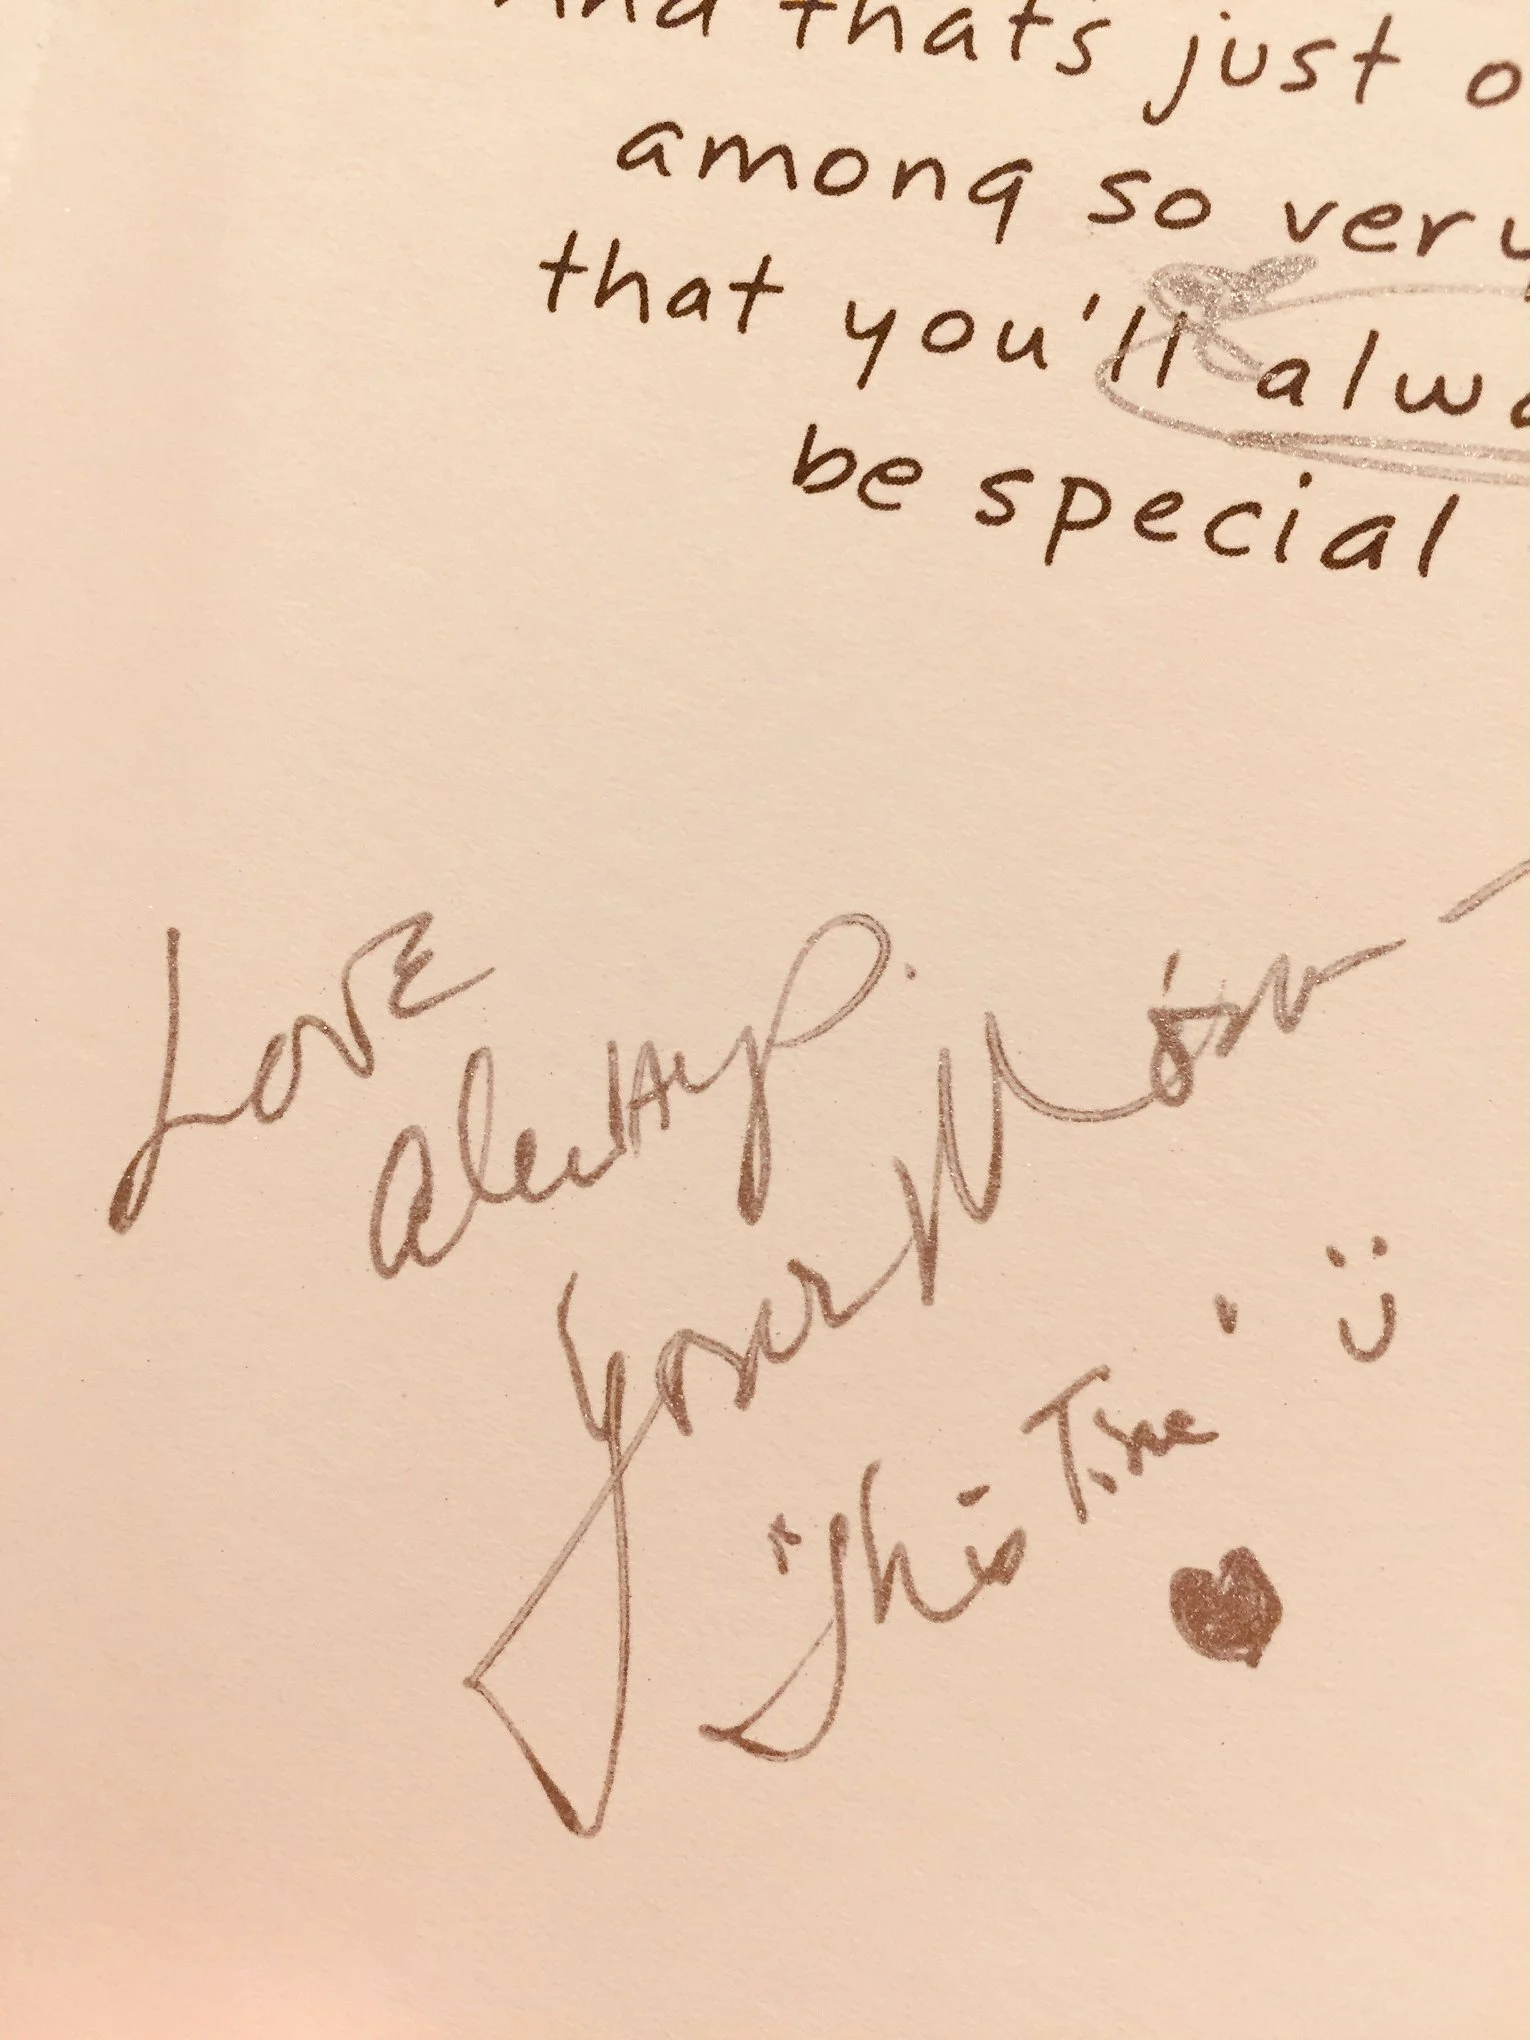 And that's just
among so very
that you'll
be special
Love
always
your Mom
"This Time" :)